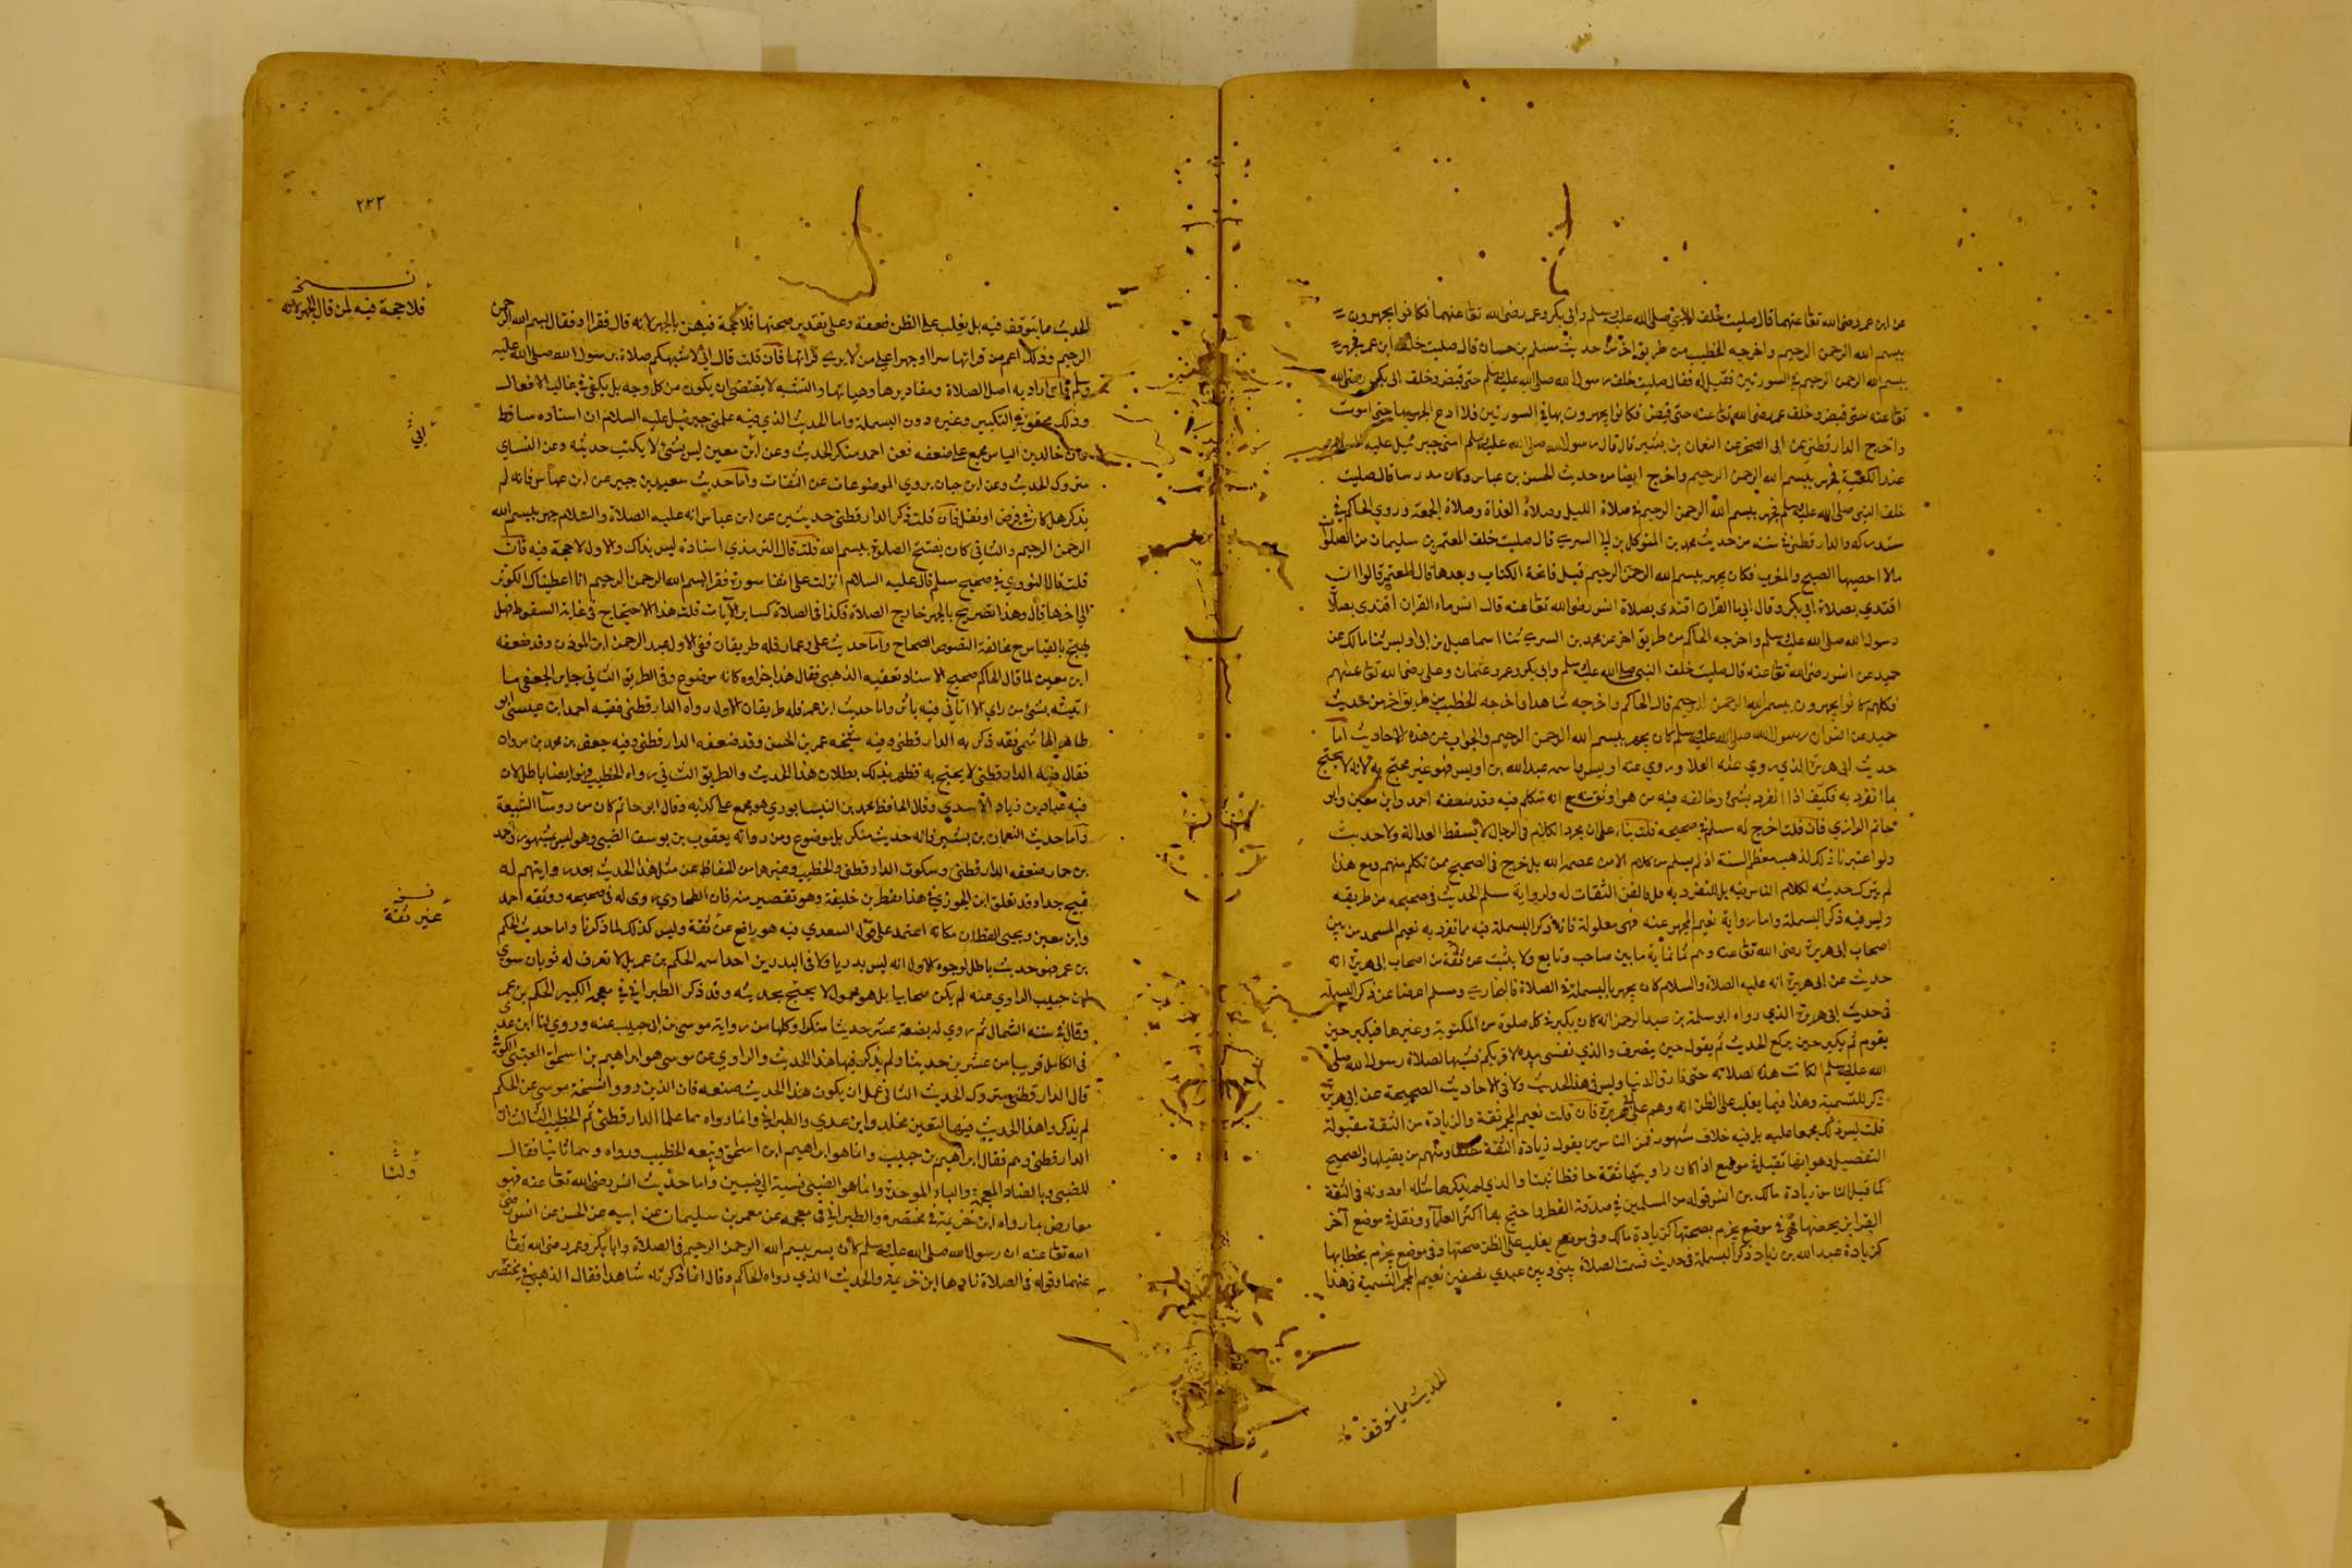 عن ابن عمر رضى الله تعا عنهما قال صليت خلف النبى صلى الله عليه وسلم وابى بكر وعمر رضى الله تعا عنهما فكانوا يجهرون
ببسم الله الرحمن الرحيم واخرجه الخطيب من طريق اخر من حديث مسلم بن حسان قال صليت خلف ابن عمر فجهر
ببسم الله الرحمن الرحيم فى السورتين فقيل له فقال صليت خلف رسول الله صلى الله عليه وسلم حتى قبض وخلف ابى بكر رضى الله
تعا عنه حتى قبض وخلف عمر رضى الله تعا عنه حتى قبض فكانوا يجهرون بها فى السورتين فلا ادع الجهر بها حتى اموت
واخرج الدارقطنى عن ابى الضحى عن النعمان بن بشير قال قال رسول الله صلى الله عليه وسلم امنى جبرئيل عليه السلام
عند الكعبة فجهر ببسم الله الرحمن الرحيم واخرج ايضا من حديث الحسن بن عباس وكان مدرسا قال صليت
خلف النبى صلى الله عليه وسلم فجهر ببسم الله الرحمن الرحيم فى صلاة الليل وصلاة الغداة وصلاة الجمعة وروى الحاكم فى
مستدركه والدارقطنى فى سننه من حديث محمد بن المتوكل بن ابى السرى قال صليت خلف المعتمر بن سليمان من الصلوات
مالا احصيها الصبح والمغرب فكان يجهر ببسم الله الرحمن الرحيم قبل فاتحة الكتاب وبعدها قال المعتمر قالوا ان
اقتدى بصلاة ابى بكر وقال ابى ما القران اقتدى بصلاة انس رضى الله تعا عنه قال انس ماء القران اقتدى بصلاة
رسول الله صلى الله عليه وسلم واخرجه الحاكم من طريق اخر عن محمد بن السرى ثنا اسماعيل بن ابى اويس ثنا مالك عن
حميد عن انس رضى الله تعا عنه قال صليت خلف النبى صلى الله عليه وسلم وابى بكر وعمر وعثمان وعلى رضى الله تعا عنهم
فكلهم كانوا يجهرون ببسم الله الرحمن الرحيم قال الحاكم واخرجه شاهدا واخرجه الخطيب من طريق اخر من حديث
حميد عن انس ان رسول الله صلى الله عليه وسلم كان يجهر ببسم الله الرحمن الرحيم والجواب عن هذه الاحاديث اما
حديث ابى هريرة الذى روى عنه العلا وروى عنه اويس واسمه عبدالله بن اويس فهو غير محتج به لانه لا يحتج
بما انفرد به فكيف اذا انفرد بشئ وخالفه فيه من هو اوثق منه مع انه متكلم فيه وقد ضعفه احمد وابن معين وابو
حاتم الرازى فان قلت اخرج له مسلم فى صحيحه قلت بناء على ان مجرد الكلام فى الرجال لا يسقط العدالة ولا حديث
ولو اعتبرنا ذلك لذهب معظم السنة اذ لم يسلم من كلام الا من عصمه الله بل خرج فى الصحيح ممن تكلم منهم ومع هذا
لم يترك حديثه لكلام الناس فيه بل للتفرد به ومخالفة الثقات له ولرواية مسلم الحديث فى صحيحه من طريقه
وليس فيه ذكر البسملة واما رواية نعيم المجمر عنه فهى معلولة فانه ذكر البسملة فيه مما تفرد به نعيم المجمر من بين
اصحاب ابى هريرة رضى الله تعا عنه وهم ثمانمأية ما بين صاحب وتابع ولا يثبت عن ثقة من اصحاب ابى هريرة انه
حديث عن ابى هريرة انه عليه الصلاة والسلام كان يجهر بالبسملة فى الصلاة فالبخارى ومسلم اعرضا عن ذكر البسملة
فى حديث ابى هريرة الذى رواه ابو سلمة بن عبد الرحمن انه كان يكبر فى كل صلوة من المكتوبة وغيرها فيكبر حين
يقوم ثم يكبر حين يركع الحديث ثم يقول حين ينصرف والذى نفسى بيده لا قربكم شبها لصلاة رسول الله صلى
الله عليه وسلم ان كانت هذه لصلاته حتى فارق الدنيا وليس فى هذا الحديث ولا فى الاحاديث الصحيحة عن ابى هريرة
ذكر للتسمية وهذا فيما يغلب على الظن انه وهم على ابى هريرة فان قلت نعيم المجمر ثقة والزيادة من الثقة مقبولة
قلت ليس ذلك مجمعا عليه بل فيه خلاف مشهور فمن الناس من يقول زيادة الثقة مطلقا ومنهم من يقبلها والصحيح
التفصيل وهو انها تقبل فى موضع اذا كان راويتها ثقة حافظا ثبتا والذى لم يذكرها مثله او دونه فى الثقة
كما قبلات من زيادة مالك بن انس قوله من المسلمين فى صدقة الفطر واحتج بها اكثر العلماء وتقبل فى موضع آخر
لقراين يخصها فهى فى موضع يجزم بصحتها كزيادة مالك وفى موضع يغلب على الظن صحتها وفى موضع يجزم بخطائها
كزيادة عبد الله بن زياد ذكر البسملة فى حديث قسمت الصلاة بينى وبين عبدى نصفين نعيم المجمر التسمية فى هذا
الحديث مما يتوقف
٢٢٣
الحديث مما يتوقف فيه بل يغلب على الظن ضعفه وعلى تقدير صحتها فلا حجة فيه لمن بالجهر لانه قال فقرا او فقال بسم الله الرحمن
الرحيم وذلك اعم من قراتها سرا او جهرا على من لا يرى قراتها فان قلت قال انى لاشبهكم صلاة برسول الله صلى الله عليه
وسلم فانى اراد به اصل الصلاة ومقاديرها وهيأتها والتشبه لا يقتضى ان يكون من كل وجه بل يكفى فى غالب الافعال
وذلك محقق فى التكبير وغيره دون البسملة واما الحديث الذى فيه علمنى جبرئيل عليه السلام ان اسناده ساقط
فان خالد بن الياس مجمع على ضعفه فعن احمد منكر الحديث وعن ابن معين ليس بشئ لا يكتب حديثه وعن النساى
متروك الحديث وعن ابن حبان يروى الموضوعات عن الثقات واما حديث سعيد بن جبير عن ابن عباس فانه لم
يذكر هل كان فى فرض او نفل فان قلت ذكر الدارقطنى حديثين عن ابن عباس انه عليه الصلاة والسلام جهر ببسم الله
الرحمن الرحيم والثانى كان يفتتح الصلوة ببسم الله قلت قال الترمذى اسناده ليس بذاك والاول لا حجة فيه فان
قلت قال النووى فى صحيح مسلم قال عليه السلام انزلت على انفا سورة فقرا بسم الله الرحمن الرحيم انا اعطيناك الكوثر
الى اخرها قال وهذا تصريح بالجهر خارج الصلاة فكذا فى الصلاة كساير الآيات قلت هذا الاحتجاج فى غاية السقوط فهل
يحتج بالقياس مع مخالفة النصوص الصحاح واما حديث على وعمار فله طريقان ففى الاول عبد الرحمن ابن المؤذن وقد ضعفه
ابن معين لما قال الحاكم صحيح الاسناد تعقبه الذهبى فقال هذا خبر واه كانه موضوع وفى الطريق الثانى جابر الجعفى ما
اتيته بشئ من راى الا اتانى فيه باثر واما حديث ابن عمر فله طريقان الاول رواه الدارقطنى ففيه احمد ابن عيسى ابو
طاهر الهاشمى فقد ذكر به الدارقطنى وفيه شيخه عمر بن الحسن وقد ضعفه الدارقطنى وفيه جعفر بن محمد بن مروان
فقال فيه الدارقطنى لا يحتج به فظهر بذلك بطلان هذا الحديث والطريق الثانى رواه الخطيب فهو ايضا باطل لان
فيه عباد بن زياد الاسدى وقال الحافظ محمد بن النيسابورى هو مجمع على كذبه وقال ابو حاتم كان من روسآ الشيعة
واما حديث النعمان بن بشير فانه حديث منكر بل موضوع ومن رواته يعقوب بن يوسف الضبى وهو ليس بمشهور واحمد
بن حماد ضعفه الدارقطنى وسكوت الدارقطنى والخطيب وغيرهما من الحفاظ عن مثل هذا الحديث بعد روايتهم له
قبيح جدا وقد تعلق ابن الجوزى فى هذا بفطر بن خليفة وهو تقصير منه فان الطحاوى روى له فى صحيحه ووثقه احمد
وابن معين ويحيى القطان وكانه اعتمد على قول السعدى فيه هو رافع عن ثقة وليس كذلك لما ذكرنا واما حديث الحكم
بن عمير فهو حديث باطل لوجوه الاول انه ليس بدريا ولا فى البدريين احد اسمه الحكم بن عمير بل لا تعرف له ثوبان سوى
ابن حبيب الراوى عنه لم يكن صحابيا بل هو مجهول لا يحتج بحديثه وقد ذكر الطبرانى فى معجمه الكبير الحكم بن عمير
وقال فى سنته الشمال ثم روى له بضعة عشر حديثا منكرا وكلها من رواية موسى بن ابى حبيب عنه وروى لنا ابن عدى
فى الكامل قريبا من عشرين حديثا ولم يذكر فيها هذا الحديث والراوى عن موسى هو ابراهيم بن اسحاق الصينى الكوفى
قال الدارقطنى متروك الحديث الثانى يحتمل ان يكون هذا الحديث صنعه فان الذين رووا نسخة موسى عن الحكم
لم يذكروا هذا الحديث فيها كبقى بن مخلد وابن عدى والطبرانى وانما رواه مما علمنا الدارقطنى ثم الخطيب الثالث ان
الدارقطنى وهم فقال ابراهيم بن حبيب وانما هو ابراهيم ابن اسحق وتبعه الخطيب ورواه وهما ثانيا فقال
الضبى وبالضاد المعجمة والباء الموحدة وانما هو الصينى نسبة الى ضبين واما حديث انس رضى الله تعا عنه فهو
معارض بما رواه ابن خزيمة فى مختصره والطبرانى فى معجمه عن معمر بن سليمان عن ابيه عن الحسن عن انس رضى
الله تعا عنه ان رسول الله صلى الله عليه وسلم كان يسر ببسم الله الرحمن الرحيم فى الصلاة وابا بكر وعمر رضى الله تعا
عنهما وقوله فى الصلاة زادها ابن خزيمة والحديث الذى رواه الحاكم وقال انما ذكرته شاهدا فقال الذهبى فى مختصر
نسخه
فلا حجة فيه لمن قال بالجهر لانه
ابى
نسخه
غير ثقة
ولنا